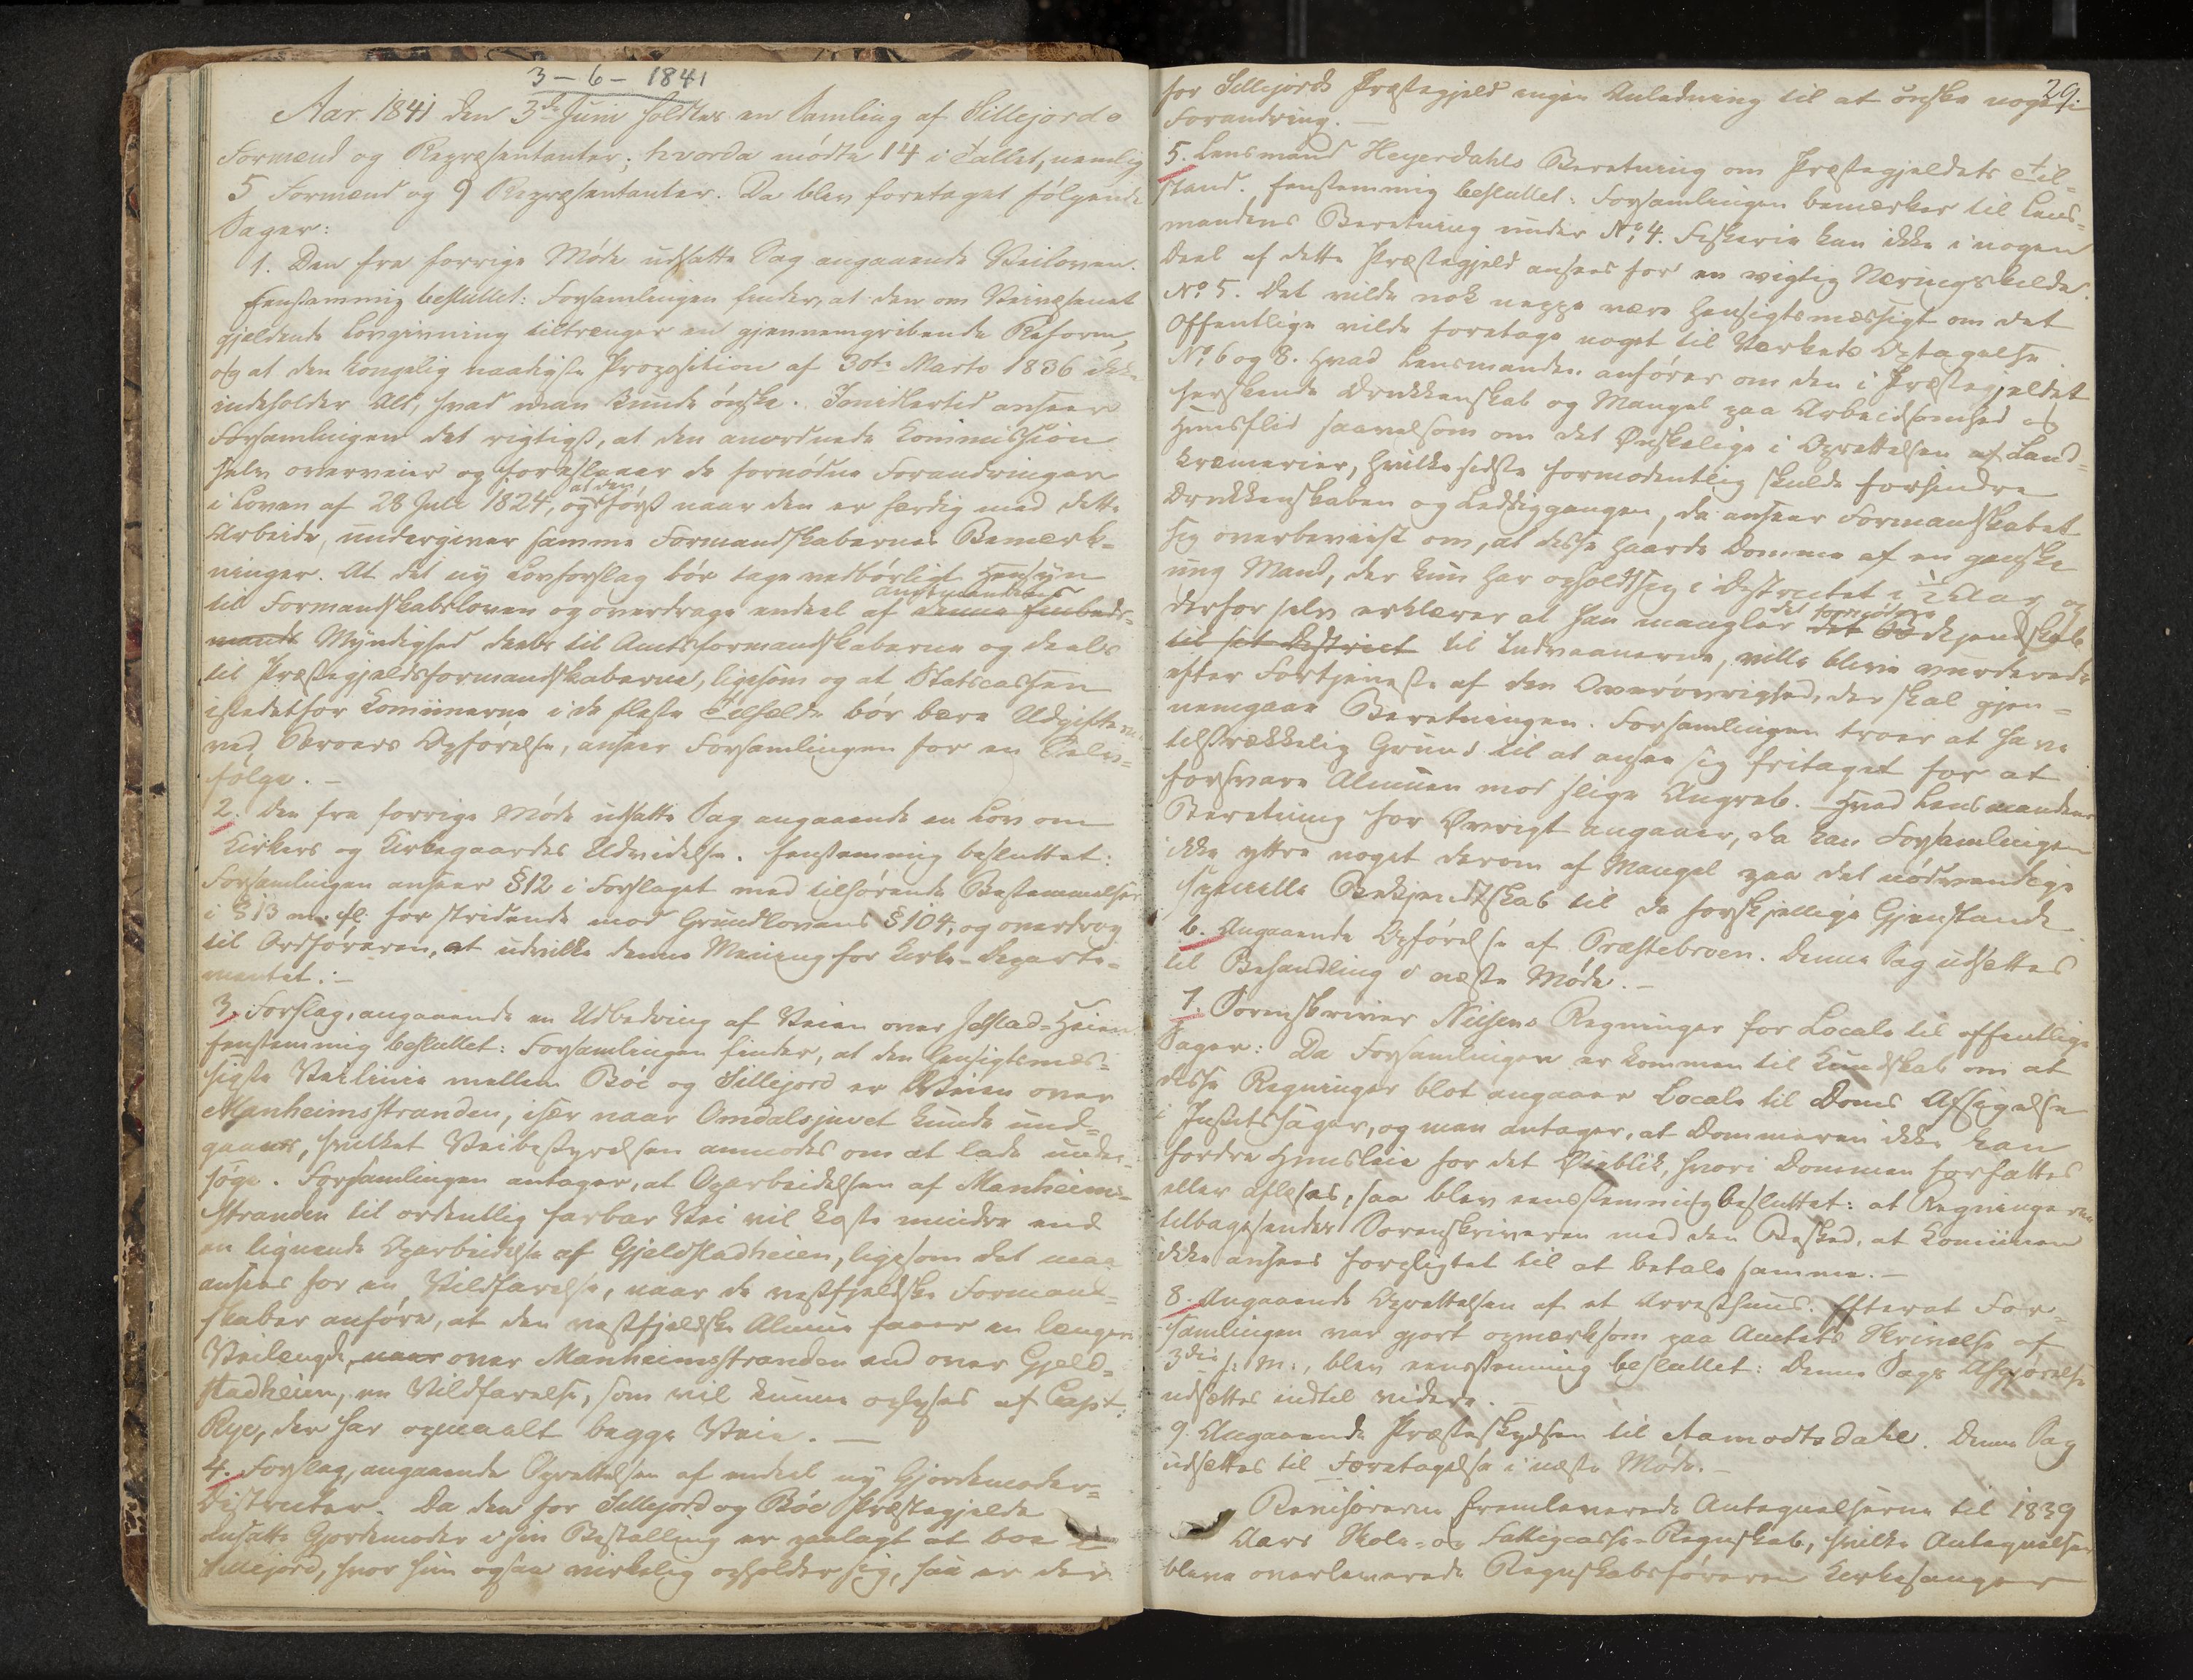 3 - 6 - 1841
Aar 1841 den 3die Juni holdtes en Samling af Sillejords
Formænd og Repræsentanter; hvorda mødte 14 i Tallet, nemlig
5 Formænd og 9 Repræsentanter. Da blev foretaget følgende
Sager:
1. Den fra forrige Møde udsatte Sag angaaende Veiloven.
Eenstemmig besluttet: Forsamlingen finder, at den om Veivæsenet
gjeldende Lovgivning tiltrænger en gjennemgribende Reform,
og at den Kongelig naadigste Proposition af 30te Marts 1836 ikke
indeholder Alt, hvad man kunde ønske. Imidlertid anseer
Forsamlingen det rigtigst, at den anordnede Kommission
selv overveier og foreslaaer de fornødne Forandringer
i Loven af 28 Juli 1824, og at den, først naar den er færdig med dette
Arbeide, undergiver samme Formandskabernes Bemærk=
ninger. At det ny Lovforslag bør tage vedbørligt Hensyn
til Formandskabsloven og overdrage endeel af denne Embeds= Amtmandens
mands Myndighed deels til Amtsformandskaberne og deels
til Præstegjeldsformandskaberne, ligesom og at Statscassen
istedetfor Komiinerne i de fleste Tilfælde bør bære Udgifterne
ved Broers Opførelse, anseer Forsamlingen for en Selv=
følge. —
2. Den fra forrige Møde udsatte Sag angaaende en Lov om
Kirkers og Kirkegaardes Udvidelse. Eenstemmig besluttet:
Forsamlingen anseer §12 i Forslaget med tilhørende Bestemmelser
i §13 m. fl. for stridende mod Grundlovens §104, og overdrog
til Ordføreren, at udvikle denne Mening for Kirke-Departe=
mentet: —
3. Forslag, angaaende en Udbedring af Veien over Jelstad-Heien
Eenstemmig besluttet: Forsamlingen finder, at den hensigtsmæs=
sigste Veilinie mellem Böe og Sillejord er Veien over
Manheimsstranden, især naar Omdalsjuvet kunde und=
gaaes, hvilket Veibestyrelsen anmodes om at lade under=
søge. Forsamlingen antager, at Oparbeidelsen af Manheims=
stranden til ordentlig farbar Vei vil koste mindre end
en lignende Oparbeidelse af Gjeldstadheien, ligesom det maa
ansees for en Vildfarelse, naar de vestfjeldske Formand=
skaber anføre, at den vestfjeldske Almue faaer en længere
Veilængde, naar over Manheimsstranden end over Gjeld=
stadheien, en Vildfarelse, som vil kunne oplyses af Capt:
Rye, der har opmaalt begge Veie. —
4. Forslag, angaaende Oprettelsen af endeel ny Gjordemoder=
Districter. Da den for Sillejord og Böe Præstegjelde
ansatte Gjordemoder i sin Bestalling er paalagt at boe i
Sillejord, hvor hun ogsaa virkelig opholder sig, saa er der
29.
for Sillejords Præstegjeld ingen Anledning til at ønske nogen
Forandring. —
5. Lensmand Heyerdahls Beretning om Præstegjeldets Til=
stand. Eenstemmig besluttet: Forsamlingen bemærker til Lens=
mandens Beretning under No 4. Fiskerie kan ikke i nogen
Deel af dette Præstegjeld ansees for en vigtig Næringskilde.
No 5. Det vilde nok neppe være hensigtsmæssigt om det
Offentlige vilde foretage noget til Værkets Optagelse
No 6 og 8. Hvad Lensmanden anfører om den i Præstegjeldet
herskende Drukkenskab og Mangel paa Arbeidsomhed og
Huusflid saavelsom om det Ønskelige i Oprettelsen af Land=
kræmerier, hvilke sidste formodentlig skulde forhindre
Drukkenskaben og Lediggangen, da anseer Formandskabet
sig overbeviist om, at disse haarde Domme af en ganske
ung Mand, der kun har opholdt sig i Districtet i 2 Aar og
derfor selv erklærer at han mangler det det fornødne Bekjendskab
til sit District til Indvaanerne, ville blive vurderede
efter Fortjeneste af den Overøvrighed, der skal gjen=
nemgaae Beretningen. Forsamlingen troer at have
tilstrækkelig Grund til at ansee sig fritaget for at
forsvare Almuen mod slige Angreb. — Hvad Lensmandens
Beretning for Øvrigt angaaer, da kan Forsamlingen
ikke yttre noget derom af Mangel paa det nødvendige
specielle Bekjendtskab til de forskjellige Gjenstande
6. Angaaende Opførelse af Præstebroen. Denne Sag udsættes
til Behandling i næste Møde. —
7. Sorenskriver Nielsens Regninger for Locale til offentlige
Sager: Da Forsamlingen er kommen til Kundskab om at
disse Regninger blot angaaer Locale til Doms Afsigelse
i Justitssager, og man antager, at Dommeren ikke kan
fordre Huusleie for det Øieblik, hvori Dommen forfattes
eller aflæses, saa blev eenstemmig besluttet: at Regningerne
tilbagesendes Sorenskriveren med den Besked, at Komiinen
ikke ansees forpligtet til at betale samme. —
8. Angaaende Oprettelsen af et Arresthuus. Efterat For=
samlingen var gjort opmærksom paa Amtets Skrivelse af
3die f: M:, blev eenstemmig besluttet: Denne Sags Afgjørelse
udsættes indtil videre. —
9. Angaaende Præsteskydsen til Aamodtsdahl. Denne Sag
udsættes til Foretagelse i næste Møde. —
Revisorerne fremleverede Antegnelserne til 1839
Aars Skole- og Fattigcasse-Regnskab, hvilke Antegnelser
bleve overleverede Regnskabsføreren Kirkesanger